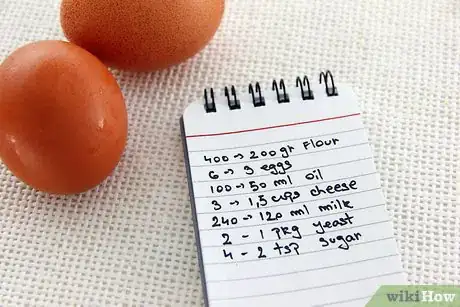 400 → 200 gr Flour
6 → 3 eggs
100 → 50 ml oil
3 → 1,5 cups cheese
240 → 120 ml milk
2 - 1 pkg yeast
4 - 2 tsp sugar
wikiHow